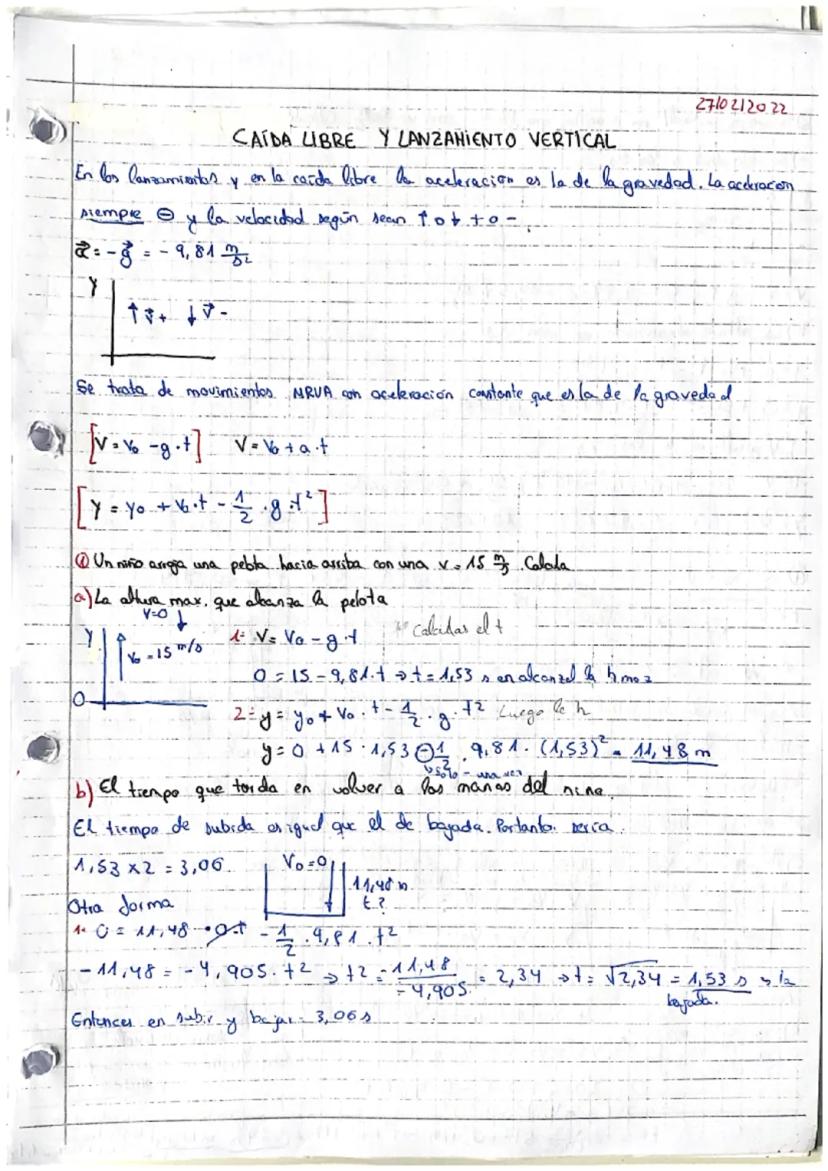 27/02/2022
CAÍDA LIBRE Y LANZAMIENTO VERTICAL
En los lanzamientos y en la caída libre la aceleración es la de la gravedad. La aceleración
siempre ⊖ y la velocidad según sean ↑ o ↓ + o -.
a⃗ = -g⃗ = - 9,81 m/s²
Y
↑ v⃗ + ↓ v⃗ -
Se trata de movimientos MRUA con aceleración constante que es la de la gravedad
[V = V₀ - g · t] V = V₀ + a · t
[y = y₀ + V₀ · t - 1/2 · g · t²]
① Un niño arroja una pelota hacia arriba con una v = 15 m/s. Calcula
a) La altura max. que alcanza la pelota
V=0 ↓
Y ↑ V₀ = 15 m/s
O
1º V = V₀ - g · t Calculas el t
0 = 15 - 9,81 · t → t = 1,53 s en alcanzar la h max
2º y = y₀ + V₀ · t - 1/2 · g · t² Luego la h
y = 0 + 15 · 1,53 ⊖ 1/2 · 9,81 · (1,53)² = 11,48 m
solo - una vez
b) El tiempo que tarda en volver a las manos del niño.
El tiempo de subida es igual que el de bajada. Por tanto. sería.
1,53 x 2 = 3,06.
V₀ = 0
11,48 m
t?
Otra forma
1º 0 = 11,48 + 0·t - 1/2 · 9,81 · t²
- 11,48 = - 4,905 · t² → t² = - 11,48 / - 4,905 = 2,34 → t = √2,34 = 1,53 s → la
bajada.
Entonces en subir y bajar = 3,06 s